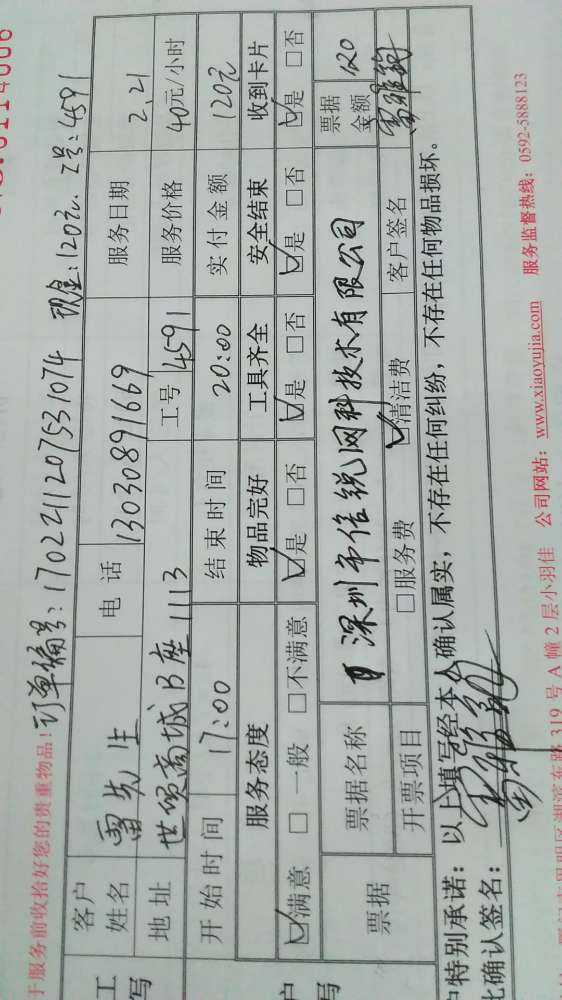 于服务前收拾好您的贵重物品! 订单编号:1702211207531074 现金:120元、工号:4591
客户姓名 雷先生 电话 13030891669 服务日期 2.21
地址 世贸商城B座1113 工号 4591 服务价格 40元/小时
开始时间 17:00 结束时间 20:00 实付金额 120元
服务态度 物品完好 工具齐全 安全结束 收到卡片
☑满意 □一般 □不满意 ☑是 □否 ☑是 □否 ☑是 □否 ☑是 □否
票据 票据名称 深圳市信锐网科技术有限公司 票据金额 120
开票项目 □服务费 ☑清洁费 客户签名
户特别承诺: 以上填写经本人确认属实,不存在任何纠纷,不存在任何物品损坏。
此确认签名:
319 号 A 幢 2 层小羽佳 公司网站: www.xiaoyujia.com 服务监督热线: 0592-5888123